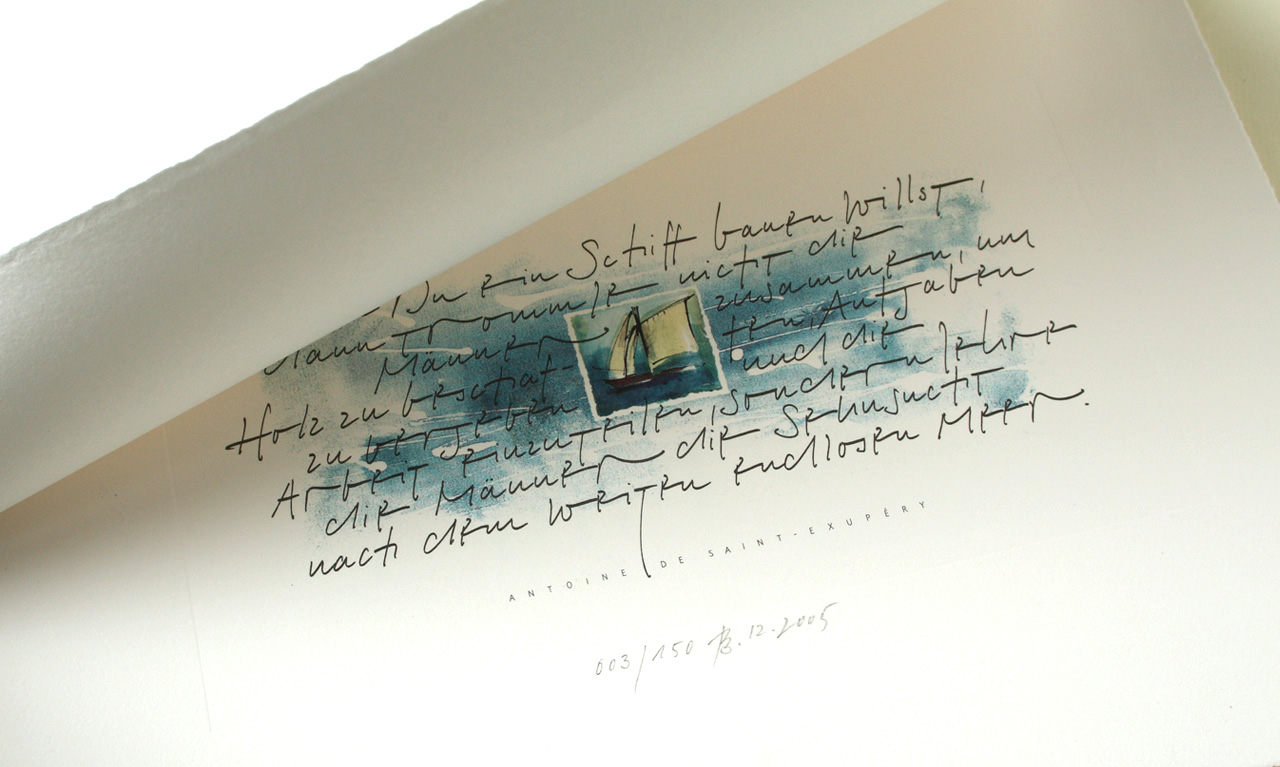 Du ein Schiff bauen willst,
dann trommle nicht die
Männer zusammen, um
Holz zu beschaffen, Aufgaben
zu vergeben und die
Arbeit einzuteilen, sondern lehre
die Männer die Sehnsucht
nach dem weiten endlosen Meer.
ANTOINE DE SAINT-EXUPÉRY
003/150 12.2005